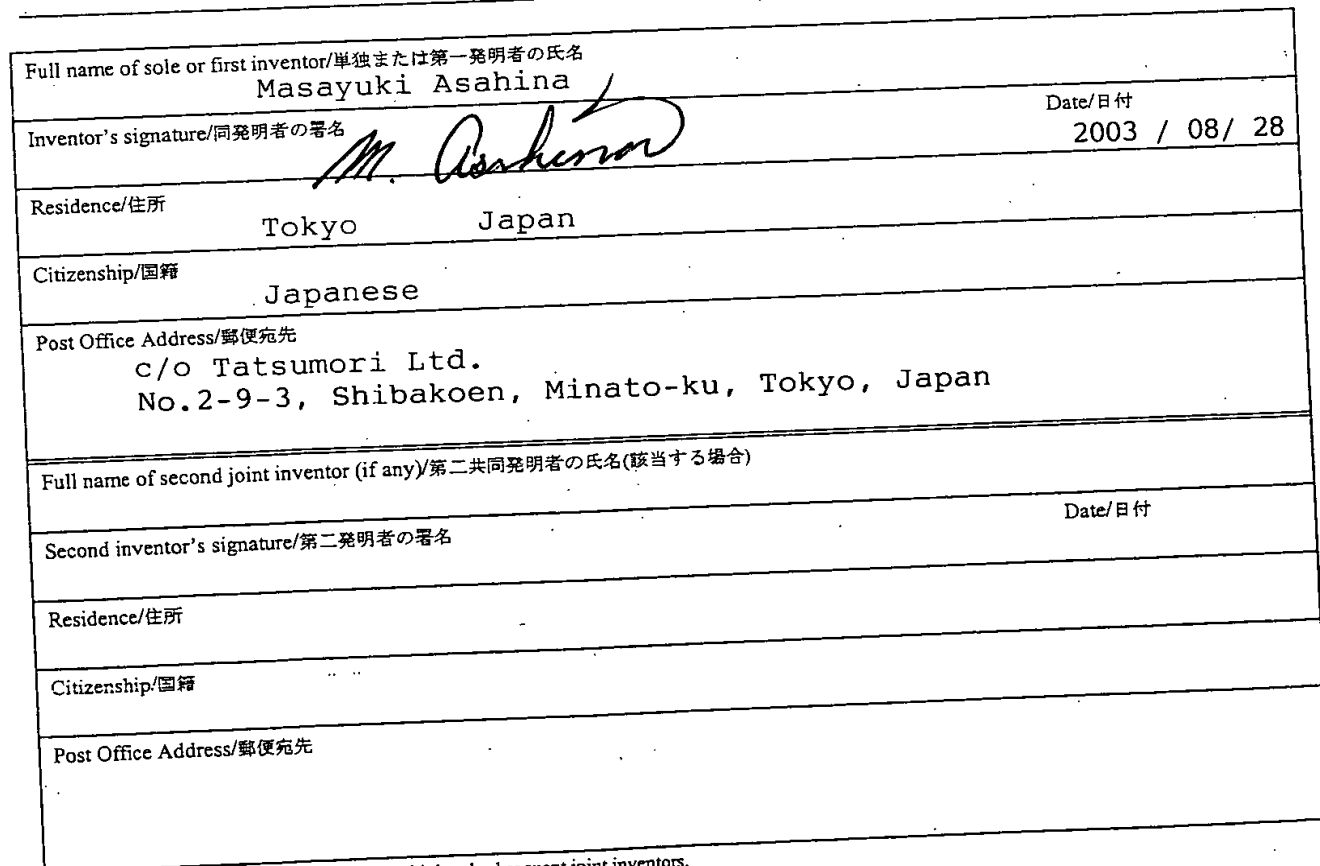 Full name of sole or first inventor/単独または第一発明者の氏名
Masayuki Asahina
Inventor's signature/同発明者の署名
M. Asahina
Date/日付
2003 / 08/ 28
Residence/住所
Tokyo Japan
Citizenship/国籍
Japanese
Post Office Address/郵便宛先
c/o Tatsumori Ltd.
No.2-9-3, Shibakoen, Minato-ku, Tokyo, Japan
Full name of second joint inventor (if any)/第二共同発明者の氏名(該当する場合)
Second inventor's signature/第二発明者の署名
Date/日付
Residence/住所
Citizenship/国籍
Post Office Address/郵便宛先
joint inventors.